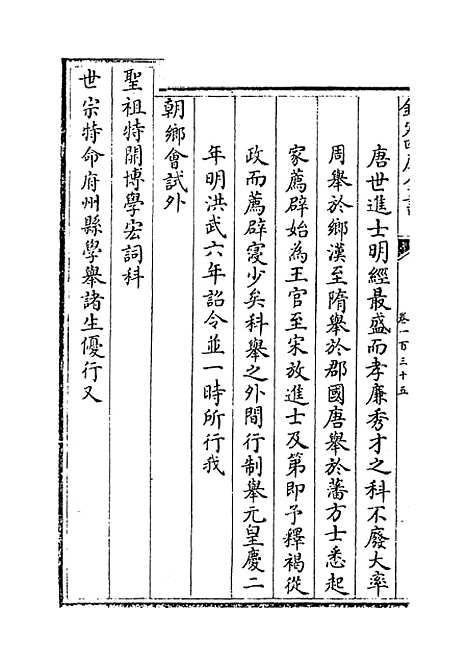 欽定四庫全書
卷一百三十五
唐世進士明經最盛而孝廉秀才之科不廢大率
周舉於鄉漢至隋舉於郡國唐舉於藩方士悉起
家薦辟始為王官至宋放進士及第即予釋褐從
政而薦辟寖少矣科舉之外間行制舉元皇慶二
年明洪武六年詔令並一時所行我
朝鄉會試外
聖祖特開博學宏詞科
世宗特命府州縣學舉諸生優行又